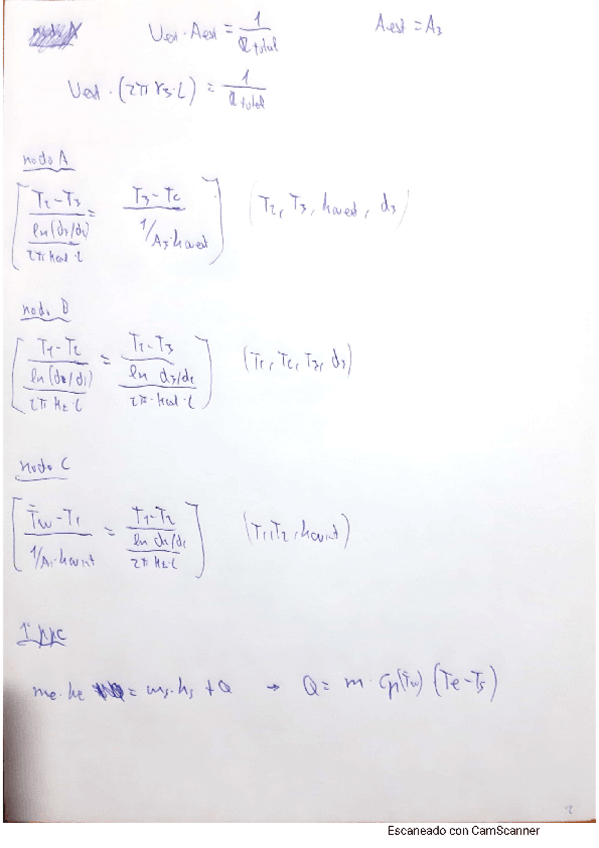 U_ext · A_ext = 1/R_total    A_ext = A_3
U_ext · (2π r_3 · L) = 1/R_total
nodo A
[ (T_2 - T_3)/(ln(d_3/d_2)/(2π k_aisl · L)) = (T_3 - T_c)/(1/A_3·h_cv,ext) ] (T_2, T_3, h_cv,ext, d_3)
nodo B
[ (T_1 - T_2)/(ln(d_2/d_1)/(2π k_2 · L)) = (T_2 - T_3)/(ln d_3/d_2/(2π · k_aisl · L)) ] (T_1, T_2, T_3, d_3)
nodo C
[ (T̄w - T_1)/(1/A_1·h_cv,int) = (T_1 - T_2)/(ln d_2/d_1/(2π k_2 · L)) ] (T_1, T_2, h_cv,int)
1º ppc
m_e · h_e = m_s · h_s + Q → Q = m · Cp(T̄w) (Te - Ts)
2
Escaneado con CamScanner